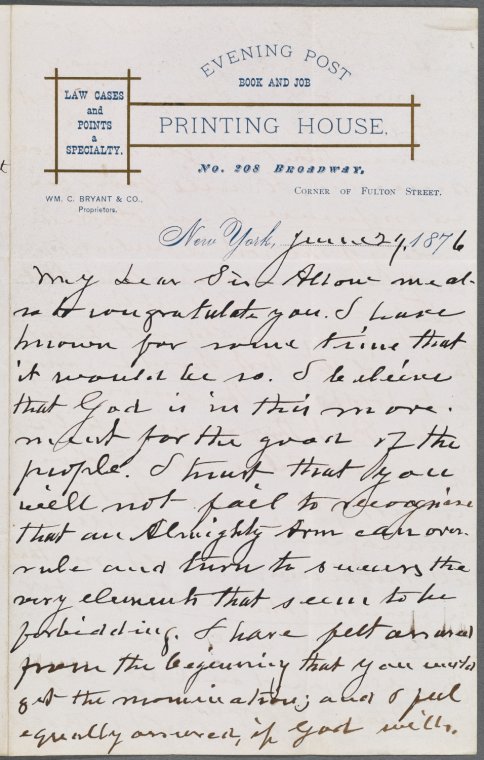 EVENING POST
BOOK AND JOB
PRINTING HOUSE.
LAW CASES
and
POINTS
a
SPECIALTY.
No. 208 BROADWAY,
CORNER OF FULTON STREET.
WM. C. BRYANT & CO.,
Proprietors.
New York, June 29, 1876
My Dear Sir - Allow me al-
so to congratulate you. I have
known for some time that
it would be so. I beleive
that God is in this move-
ment for the good of the
people. I trust that you
will not fail to recognise
that an Almighty Arm can over-
rule and turn to success the
very elements that seem to be
forbidding. I have felt assured
from the beginning that you would
get the nomination; and I feel
equally assured, if God wills,